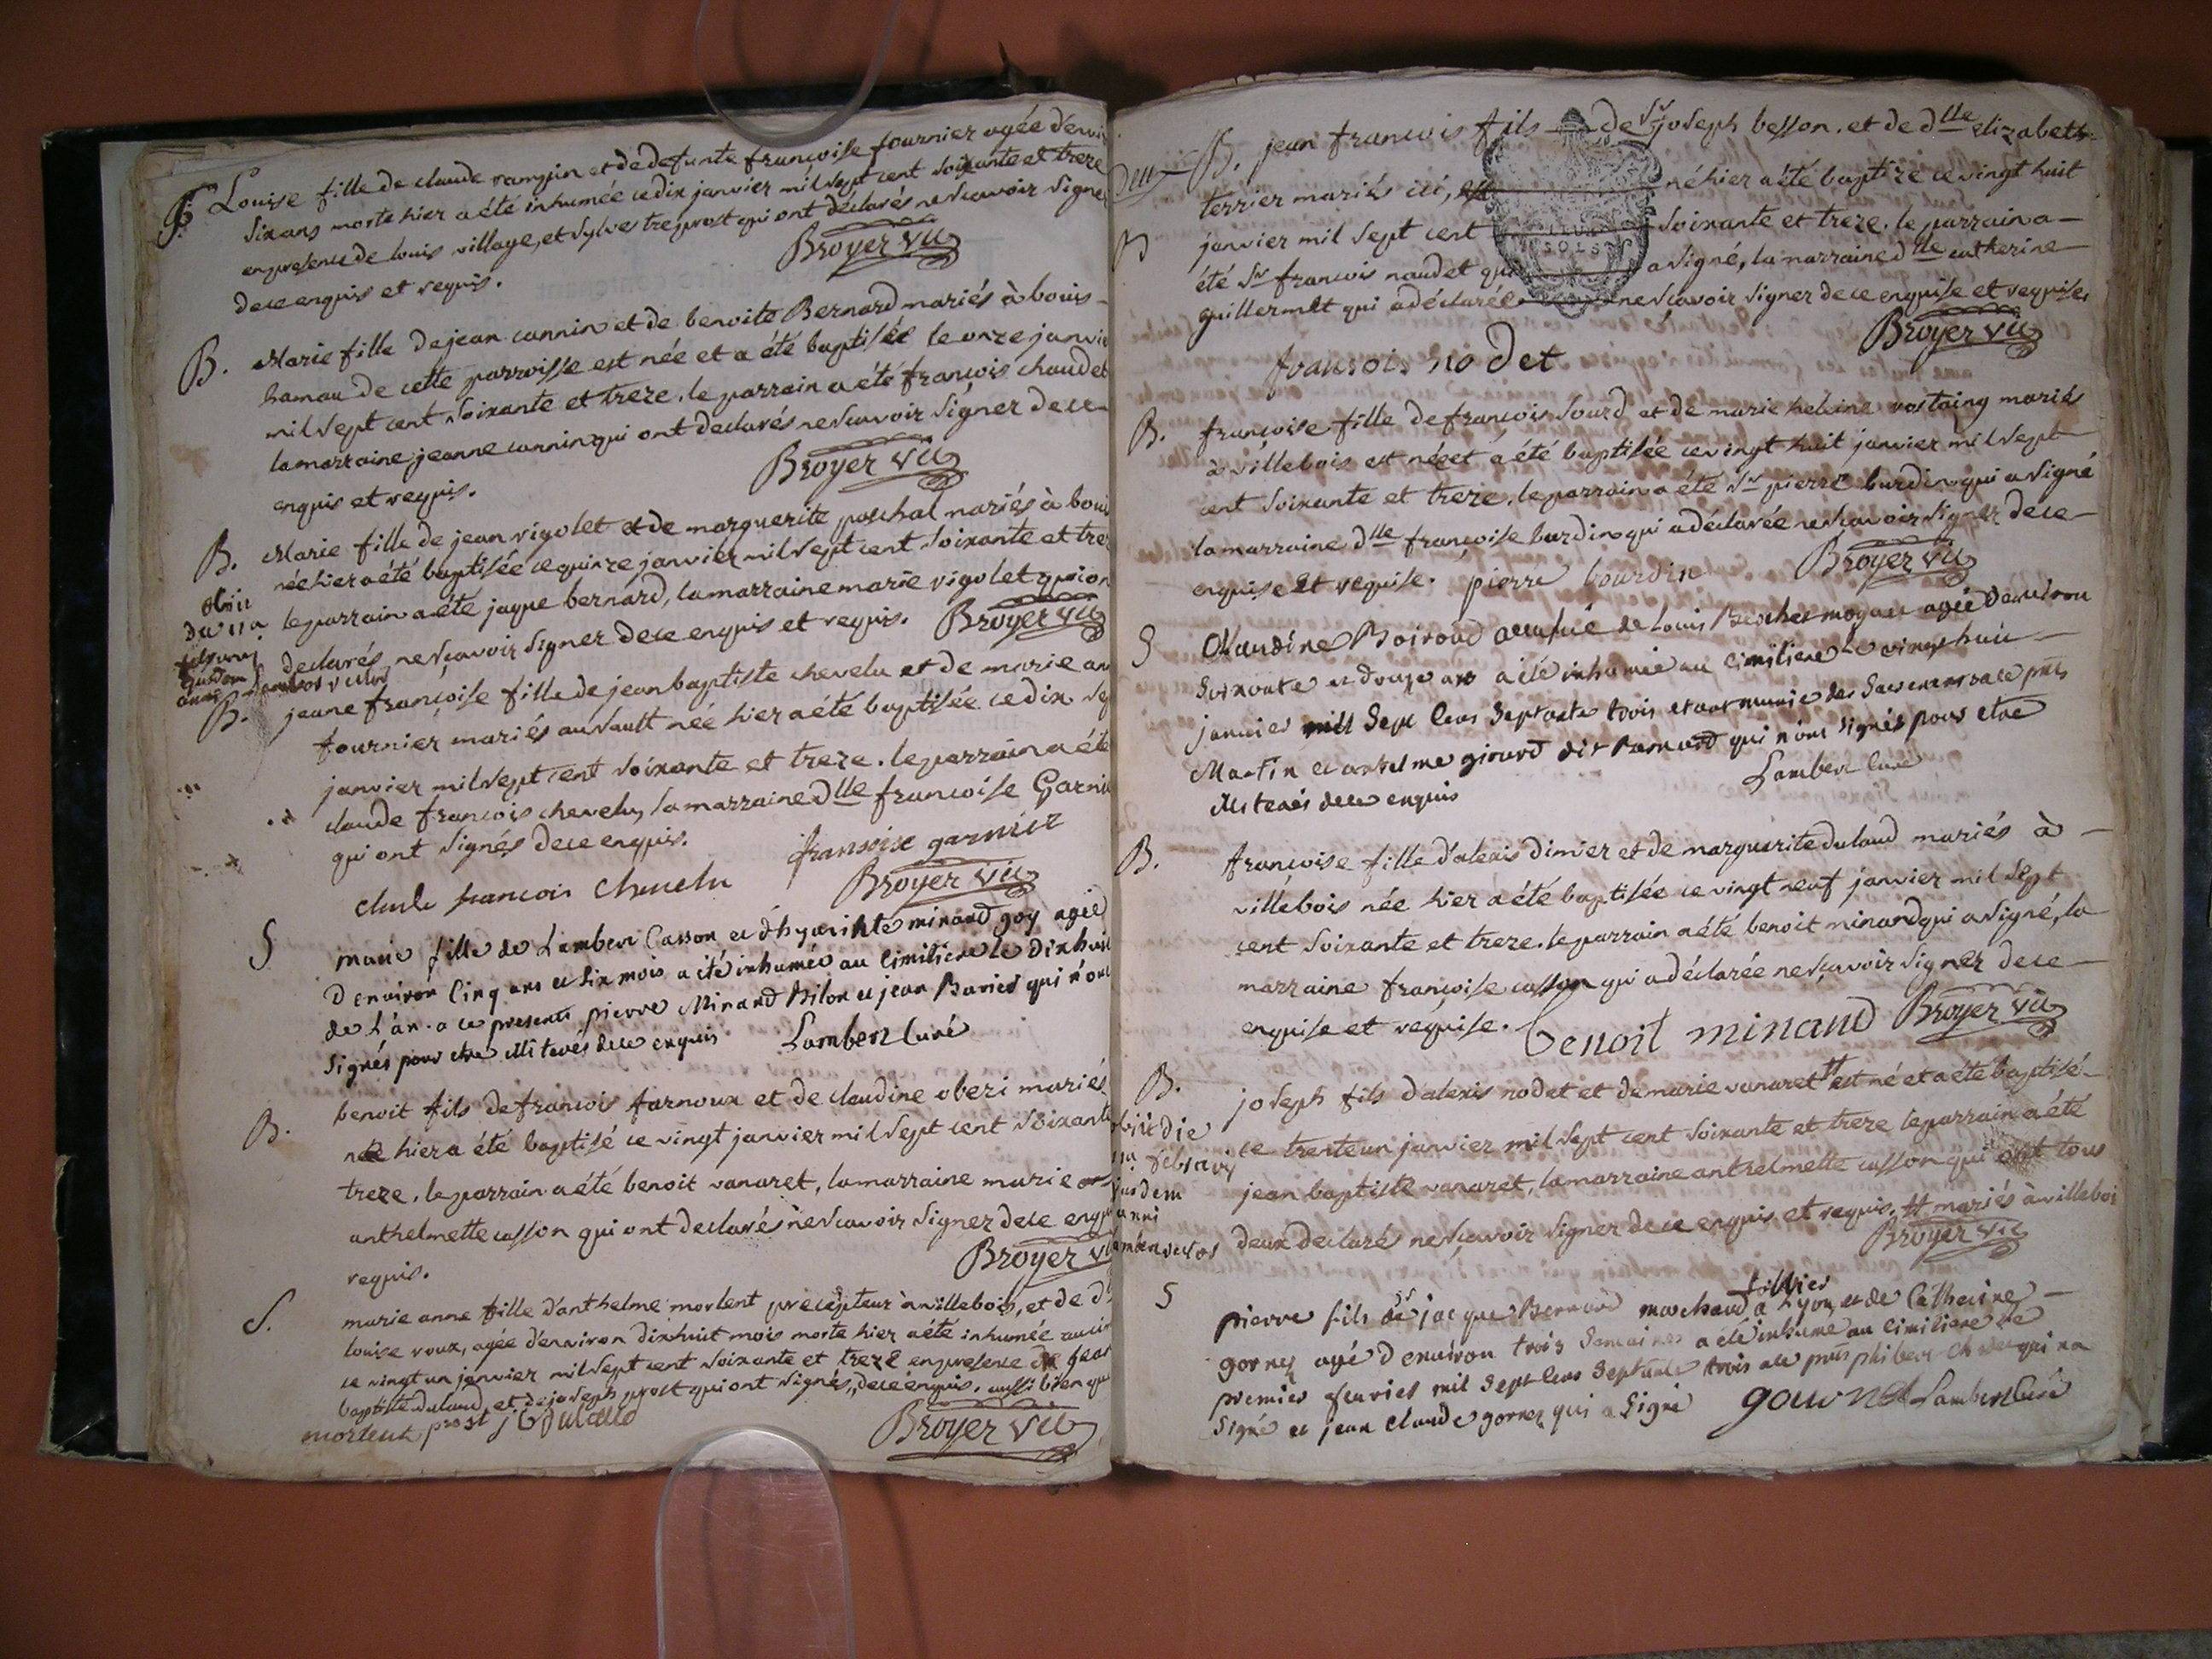 S. Louise fille de claude ramjin et de defunte françoise fournier agée d'envi
Six ans morte hier a été inhumée ce dix janvier mil sept cent soixante et treze
en presence de louis village, et Sylvestre prost qui ont declarés ne scavoir signe
de ce enquis et requis. Broyer vic
B. Marie fille de jean cannin et de benoite Bernard mariés à bouis
hamau de cette parroisse est née et a été baptisée le onze janvie
mil sept cent soixante et treze. le parrain a été françois chaudet
la marraine jeanne cannin qui ont declarés ne scavoir signer de ce
enquis et requis. Broyer vic
B. Marie fille de jean vigolet et de marguerite paschal mariés à boui
née hier a été baptisée ce quinze janvier mil sept cent soixante et tre
le parrain a été jaque bernard, la marraine marie vigolet qui on
declarés ne scavoir signer de ce enquis et requis. Broyer vic
obiit
die 11a
februarij
ejusdem
anni
B. jeane françoise fille de jean baptiste chevelu et de marie an
fournier mariés au sault née hier a été baptisée ce dix sep
janvier mil sept cent soixante et treze. le parrain a été
claude françois chevelu, la marraine dlle françoise Garni
qui ont signés de ce enquis. fransoise garnier
claude francois Chevelu Broyer vic
S marie fille de Lambert Casson et d'hyacinthe minand goy agée
d'environ cinq ans et six mois a été inhumée au cimitiere le dixhuit
de l'an. a ce presents pierre Minand Bilon et jean Baried qui n'ont
signés pour etre illiterés de ce enquis Lambert Curé
B. benoit fils de françois farnoux et de claudine oberi mariés
né hier a été baptisé ce vingt janvier mil sept cent soixante
treze, le parrain a été benoit vanaret, la marraine marie
anthelmette casson qui ont declarés ne scavoir signer de ce enqu
requis. Broyer v
S. marie anne fille d'anthelme morlent precepteur à villebois, et de d
louise roux, agée d'environ dixhuit mois morte hier a été inhumée au cim
ce vingt un janvier mil sept cent soixante et treze en presence de jean
baptiste dulaud, et de joseph prost qui ont signés, de ce enquis. aussi bien que
morlent prost j b Dulaud Broyer vic
B. jean francois fils de Sr joseph besson. et de dlle elizabeth
terrier mariés ici, né hier a été baptizé ce vingt huit
janvier mil sept cent soixante et treze. le parrain a
été Sr francois naudet qui a signé, la marraine dlle catherine
guillermet qui a déclarée ne scavoir signer de ce enquise et requise.
Broyer vic
fransois nodet
B. francoise fille de francois sourd et de marie heleine vostaing mariés
à villebois est née et a été baptisée ce vingt huit janvier mil sept
cent soixante et treze, le parrain a été Sr pierre burdin qui a signé
la marraine dlle françoise burdin qui a déclarée ne scavoir signer de ce
enquise et requise. pierre bourdin Broyer vic
S Claudine Boiroud de Louis agée d'environ
soixante et douze ans a été inhumée au cimitiere le vingt huit
janvier mill sept cens septante trois munie des sacremens a ce pnts
Martin et antelme girard dit qui n'ont signés pour etre
illiterés de ce enquis Lambert Curé
B. françoise fille d'alexis dimier et de marguerite dulaud mariés à
villebois née hier a été baptisée ce vingt neuf janvier mil sept
cent soixante et treze. le parrain a été benoit minand qui a signé, la
marraine françoise casson qui a déclarée ne scavoir signer de ce
enquise et requise. benoit minand Broyer vic
B. joseph fils d'alexis nodet et de marie vanaret tt est né et a été baptisé
ce trente un janvier mil sept cent soixante et treze le parrain a été
jean baptiste vanaret, la marraine anthelmette casson qui ont tous
deux declaré ne scavoir signer de ce enquis et requis. tt mariés à villeboi
Broyer vic
obiit die
11a februarij
ejusdem
anni
S pierre fils de Sr jacque Bernard marchand toillier a Lyon, et de Catherine
gornez agé d'environ trois semaines a été inhumé au cimitiere le
premier fevrier mil sept cens septante trois a ce pnts philibert qui n'a
signé et jean claude gornez qui a signé gournes Lambert Curé